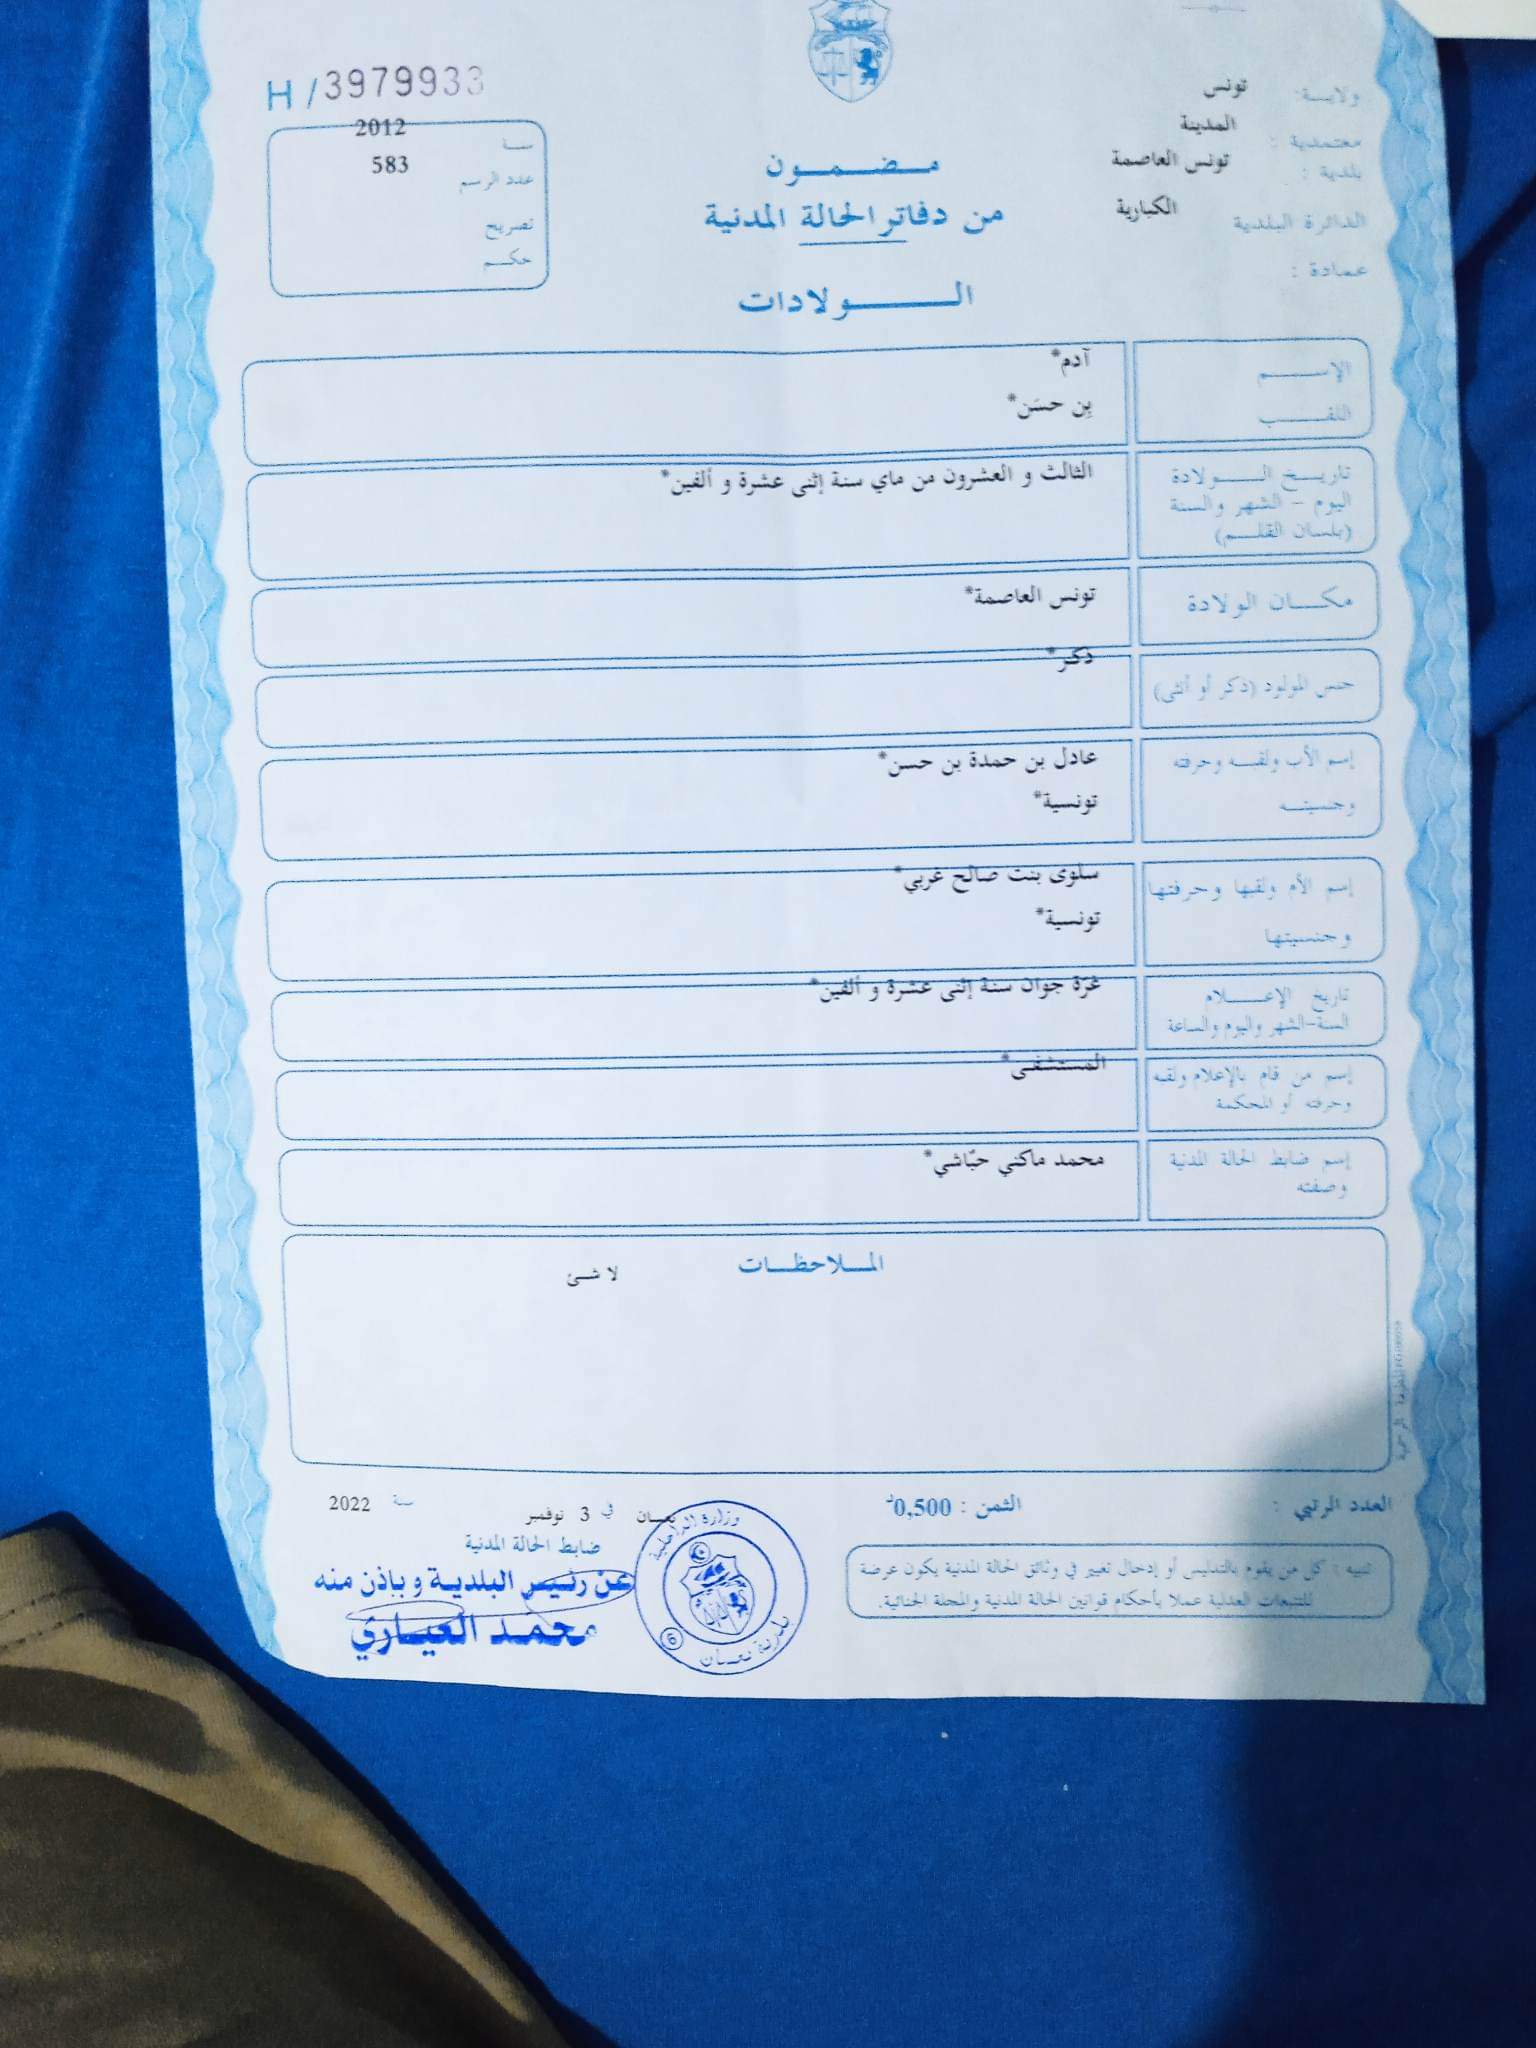 H / 3979933
ولايـــة: تونس
معتمدية : المدينة
بلدية : تونس العاصمة
الدائرة البلدية الكبارية
عمادة :
سنـــة 2012
عدد الرسم 583
تصريح
حكـــم
مـضـمـــون
من دفاتر الحالة المدنية
الـــــولادات
الإســـــم آدم*
اللقـــــب بِن حسَن*
تاريــخ الـــــولادة الثالث و العشرون من ماي سنة إثنى عشرة و ألفين*
اليوم – الشهر والسنة
(بلسان القلـــم)
مكـــان الولادة تونس العاصمة*
جنس المولود (ذكر أو أنثى) ذكر*
إسم الأب ولقبـــه وحرفته عادل بن حمدة بن حسن*
وجنسيتـــه تونسية*
إسم الأم ولقبها وحرفتها سلوى بنت صالح غربي*
وجنسيتها تونسية*
تاريخ الإعـــلام غرّة جوان سنة إثنى عشرة و ألفين*
السنة-الشهر واليوم والساعة
إسم من قام بالإعلام ولقبه المستشفى*
وحرفته أو المحكمة
إسم ضابط الحالة المدنية محمد ماكني حبّاشي*
وصفته
المــلاحظــات
لا شئ
العدد الرتبي :
الثمن : 0,500د
نعسان في 3 نوفمبر سنة 2022
ضابط الحالة المدنية
عن رئيس البلدية وبإذن منه
محمد العياري
وزارة الداخلية
بلدية نعسان
6
تنبيه : كل من يقوم بالتدليس أو إدخال تغيير في وثائق الحالة المدنية يكون عرضة
للتتبعات العدلية عملا بأحكام قوانين الحالة المدنية والمجلة الجنائية.